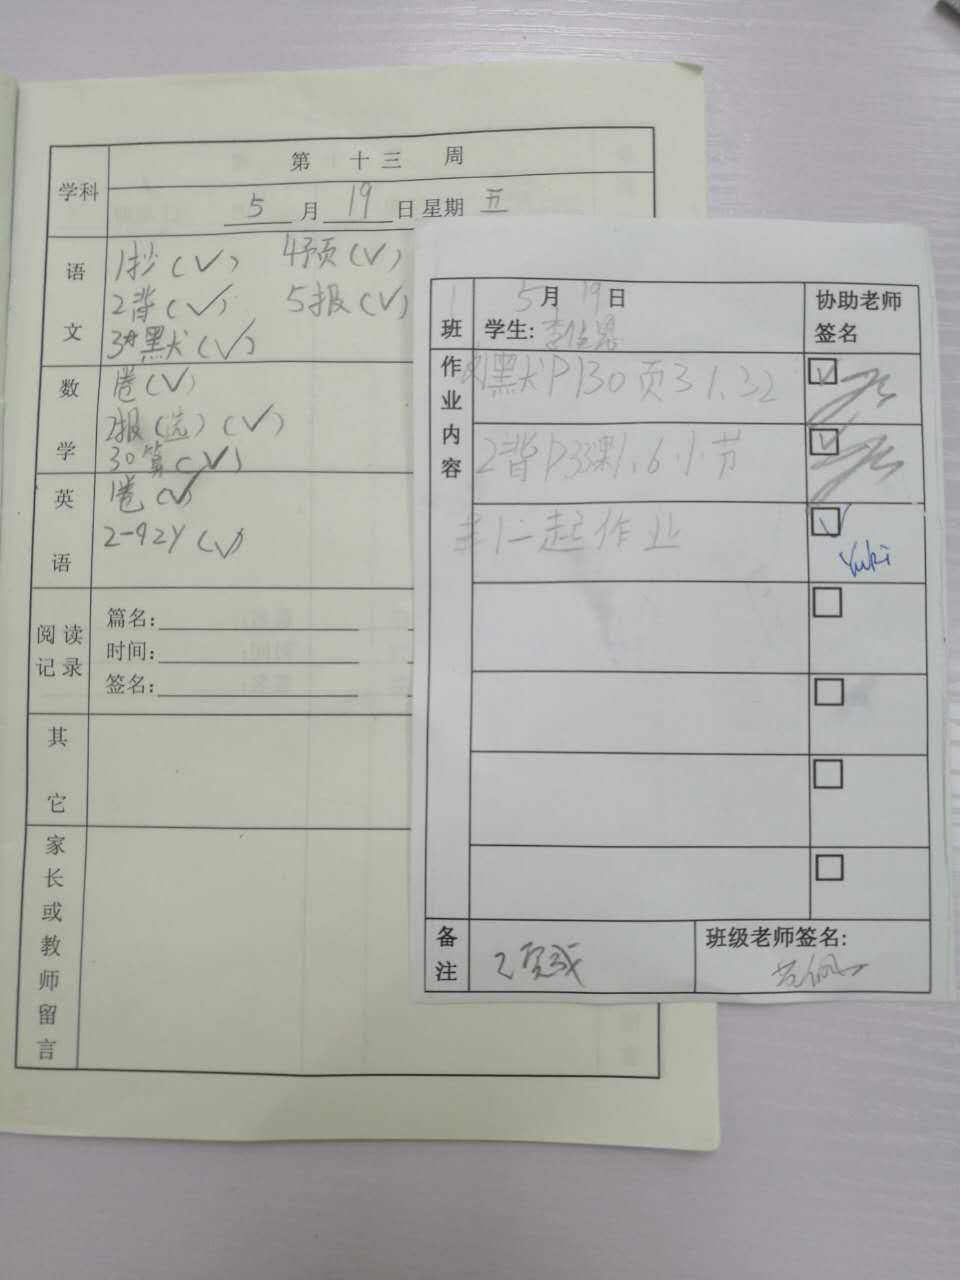 学科
第 十三 周
5 月 19 日 星期 五
语文
1抄(✓) 4预(✓)
2背(✓) 5报(✓)
3默(✓)
数学
卷(✓)
2报(选)(✓)
30算(✓)
英语
1卷(✓)
2-92y(✓)
阅读记录
篇名:
时间:
签名:
其它
家长或教师留言
班
5月19日
学生:
协助老师签名
作业内容
默P130页31.32
2背P33课1.6小节
一起作业
Yuki
备注
已完成
班级老师签名: